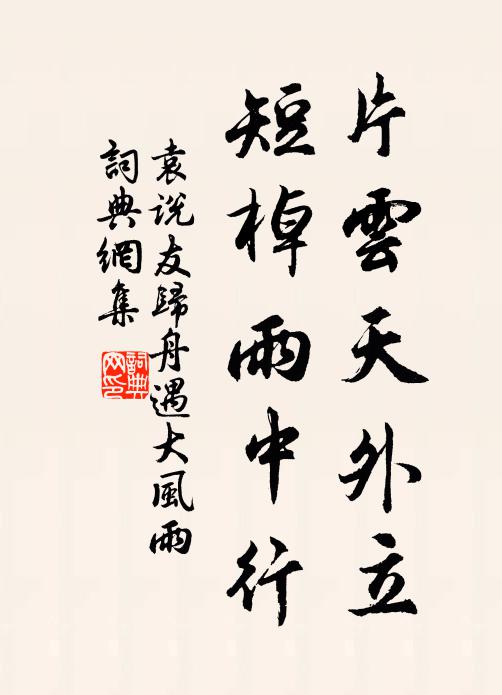 片雲天外立
短棹雨中行
袁说友歸舟遇大風雨
詞典網集
詞典
网印